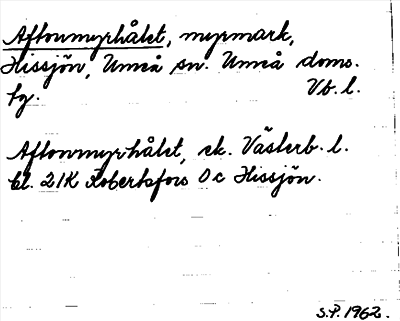 Aftonmyrhålet, myrmark,
Hissjön, Umeå sn. Umeå doms.
fg. Vb. l.
Aftonmyrhålet, ek. Västerb. l.
bl. 21K Robertsfors 0c Hissjön.
S.P. 1962.